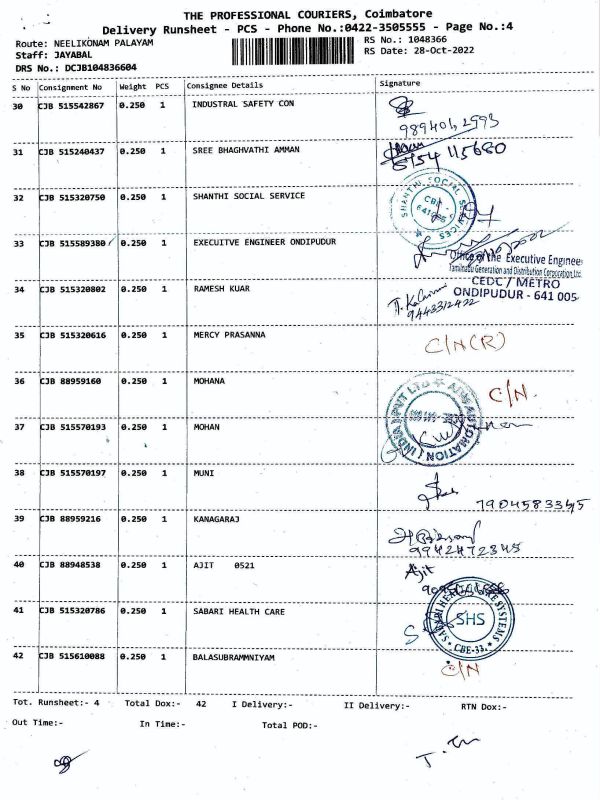 THE PROFESSIONAL COURIERS, Coimbatore
Delivery Runsheet - PCS - Phone No.:0422-3505555 - Page No.:4
Route: NEELIKONAM PALAYAM
RS No.: 1048366
Staff: JAYABAL
RS Date: 28-Oct-2022
DRS No.: DCJB104836604
S No Consignment No Weight PCS Consignee Details Signature
30 CJB 515542867 0.250 1 INDUSTRAL SAFETY CON
31 CJB 515240437 0.250 1 SREE BHAGHVATHI AMMAN
32 CJB 515320750 0.250 1 SHANTHI SOCIAL SERVICE
SHANTHI SOCIAL SERVICES
33 CJB 515589380 0.250 1 EXECUITVE ENGINEER ONDIPUDUR
Office of the Executive Engineer
Tamilnadu Generation and Distribution Corporation Ltd.
CEDC / METRO
ONDIPUDUR - 641 005
34 CJB 515320802 0.250 1 RAMESH KUAR
9443312422
35 CJB 515320616 0.250 1 MERCY PRASANNA C/N(R)
36 CJB 88959160 0.250 1 MOHANA C/N.
37 CJB 515570193 0.250 1 MOHAN
38 CJB 515570197 0.250 1 MUNI
7904583345
39 CJB 88959216 0.250 1 KANAGARAJ
9942472345
40 CJB 88948538 0.250 1 AJIT 0521 Ajit
41 CJB 515320786 0.250 1 SABARI HEALTH CARE
SHS
CBE-33.
42 CJB 515610088 0.250 1 BALASUBRAMMNIYAM C/N
Tot. Runsheet:- 4 Total Dox:- 42 I Delivery:- II Delivery:- RTN Dox:-
Out Time:- In Time:- Total POD:-